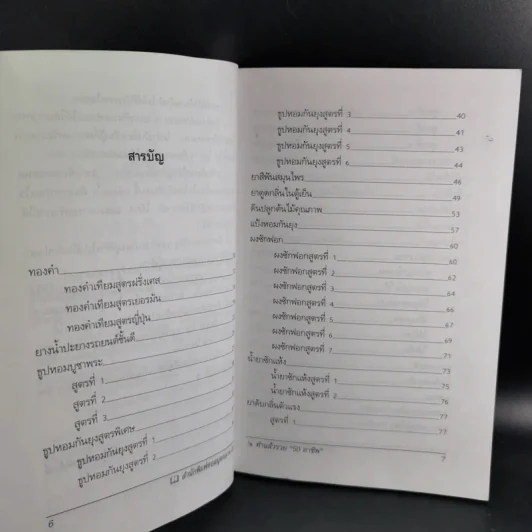 สารบัญ
ทองคำ
ทองคำเทียมสูตรฝรั่งเศส
ทองคำเทียมสูตรเยอรมัน
ทองคำเทียมสูตรญี่ปุ่น
ยางน้ำปะยางรถยนต์ชั้นดี
ธูปหอมบูชาพระ
สูตรที่ 1
สูตรที่ 2
สูตรที่ 3
ธูปหอมกันยุงสูตรพิเศษ
ธูปหอมกันยุงสูตรที่ 1
ธูปหอมกันยุงสูตรที่ 2
6
ธูปหอมกันยุงสูตรที่ 3 40
ธูปหอมกันยุงสูตรที่ 4 41
ธูปหอมกันยุงสูตรที่ 5 43
ธูปหอมกันยุงสูตรที่ 6 44
ยาสีฟันสมุนไพร 46
ยาดูดกลิ่นในตู้เย็น 49
ดินปลูกต้นไม้คุณภาพ 53
แป้งหอมกันยุง 57
ผงซักฟอก 60
ผงซักฟอกสูตรที่ 1 60
ผงซักฟอกสูตรที่ 2 62
ผงซักฟอกสูตรที่ 3 64
ผงซักฟอกสูตรที่ 4 66
ผงซักฟอกสูตรที่ 5 67
ผงซักฟอกสูตรที่ 6 69
ผงซักฟอกสูตรที่ 7 71
น้ำยาซักแห้ง 73
น้ำยาซักแห้งสูตรที่ 1 75
น้ำยาซักแห้งสูตรที่ 2 76
ยาดับกลิ่นตัวแรง 77
สูตรที่ 1 77
ทำแล้วรวย "50 อาชีพ" 7